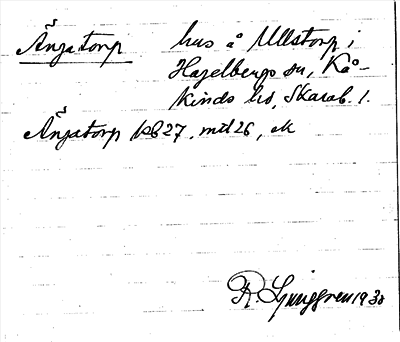 Ängatorp hus å Ullstorp i
Hagelbergs sn, Kå-
kinds hd, Skarab. l.
Ängatorp kb 27, mtl 26, ek
R. Ljunggren 1930